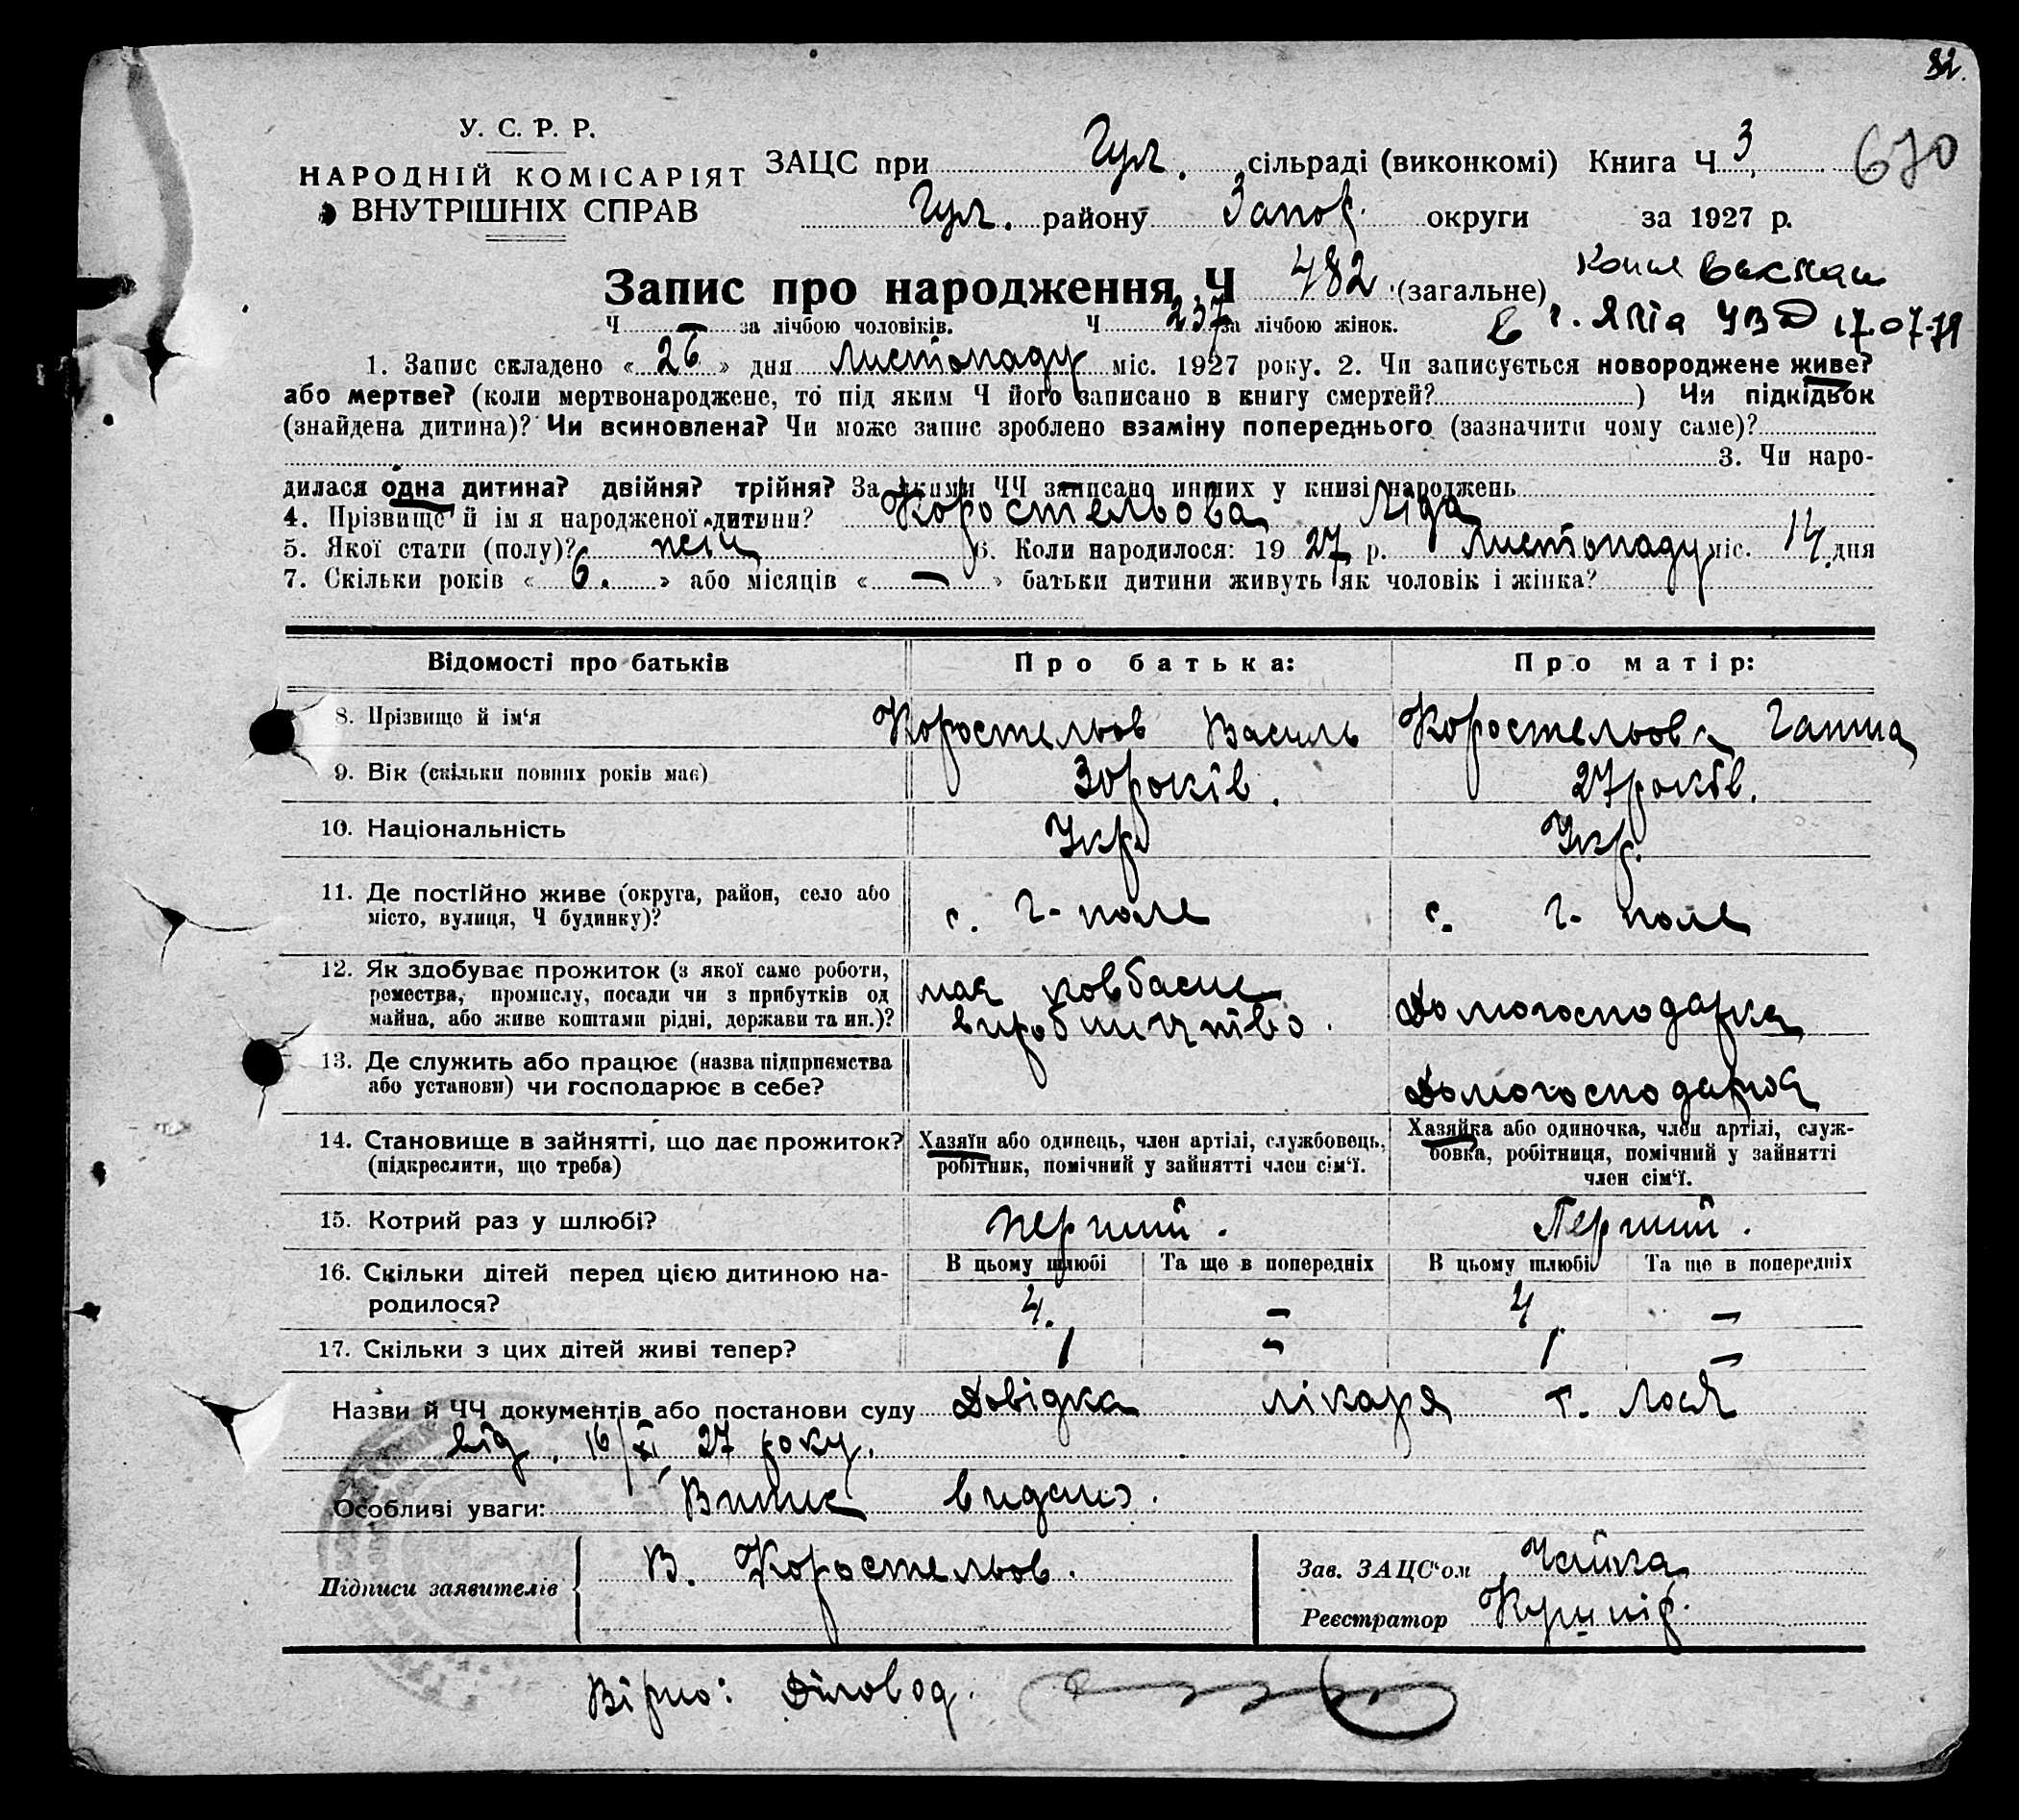 82.
У. С. Р. Р.
НАРОДНІЙ КОМІСАРІЯТ
ВНУТРІШНІХ СПРАВ
ЗАЦС при Гул. сільраді (виконкомі) Книга Ч 3 670
Гул. району Запор. округи за 1927 р.
Запис про народження Ч 482 (загальне)
Ч — за лічбою чоловіків. Ч 237 за лічбою жінок.
г. Ялта 17.07.79
1. Запис складено « 26 » дня Листопаду міс. 1927 року. 2. Чи записується новороджене живе?
або мертве? (коли мертвонароджене, то під яким Ч його записано в книгу смертей? ) Чи підкідьок
(знайдена дитина)? Чи всиновлена? Чи може запис зроблено взаміну попереднього (зазначити чому саме)?
3. Чи наро-
дилася одна дитина? двійня? трійня? За якими ЧЧ записано инших у книзі народжень
4. Прізвище й ім я народженої дитини? Коростельова Ліда
5. Якої стати (полу)? жін 6. Коли народилося: 19 27 р. Листопаду міс. 14 дня
7. Скільки років « 6. » або місяців « — » батьки дитини живуть як чоловік і жінка?
Відомості про батьків Про батька: Про матір:
8. Прізвище й ім‘я Коростельов Василь Коростельова Ганна
9. Вік (скільки повних років має) 30 років. 27 років.
10. Національність Укр Укр.
11. Де постійно живе (округа, район, село або
місто, вулиця, Ч будинку)? с. Г-поле с. Г-поле
12. Як здобуває прожиток (з якої саме роботи,
ремества, промислу, посади чи з прибутків од
майна, або живе коштами рідні, держави та ин.)?
має ковбасне
виробництво.
Домогосподарка
13. Де служить або працює (назва підприємства
або установи) чи господарює в себе?
Домогосподарка
14. Становище в зайнятті, що дає прожиток?
(підкреслити, що треба)
Хазяїн або одинець, член артілі, службовець,
робітник, помічний у зайнятті член сім‘ї.
Хазяйка або одиночка, член артілі, служ-
бовка, робітниця, помічний у зайнятті
член сім‘ї.
15. Котрий раз у шлюбі? перший. Перший.
16. Скільки дітей перед цією дитиною на-
родилося?
В цьому шлюбі Та ще в попередніх В цьому шлюбі Та ще в попередніх
4. — 4 —
17. Скільки з цих дітей живі тепер? 1 — 1 —
Назви й ЧЧ документів або постанови суду Довідка лікаря т. Лося
від 16/XI 27 року.
Особливі уваги: Випис видано.
Підписи заявителів В. Коростельов.
Зав. ЗАЦС‘ом Чайка
Реєстратор Кушнір.
Вірно: Діловод.